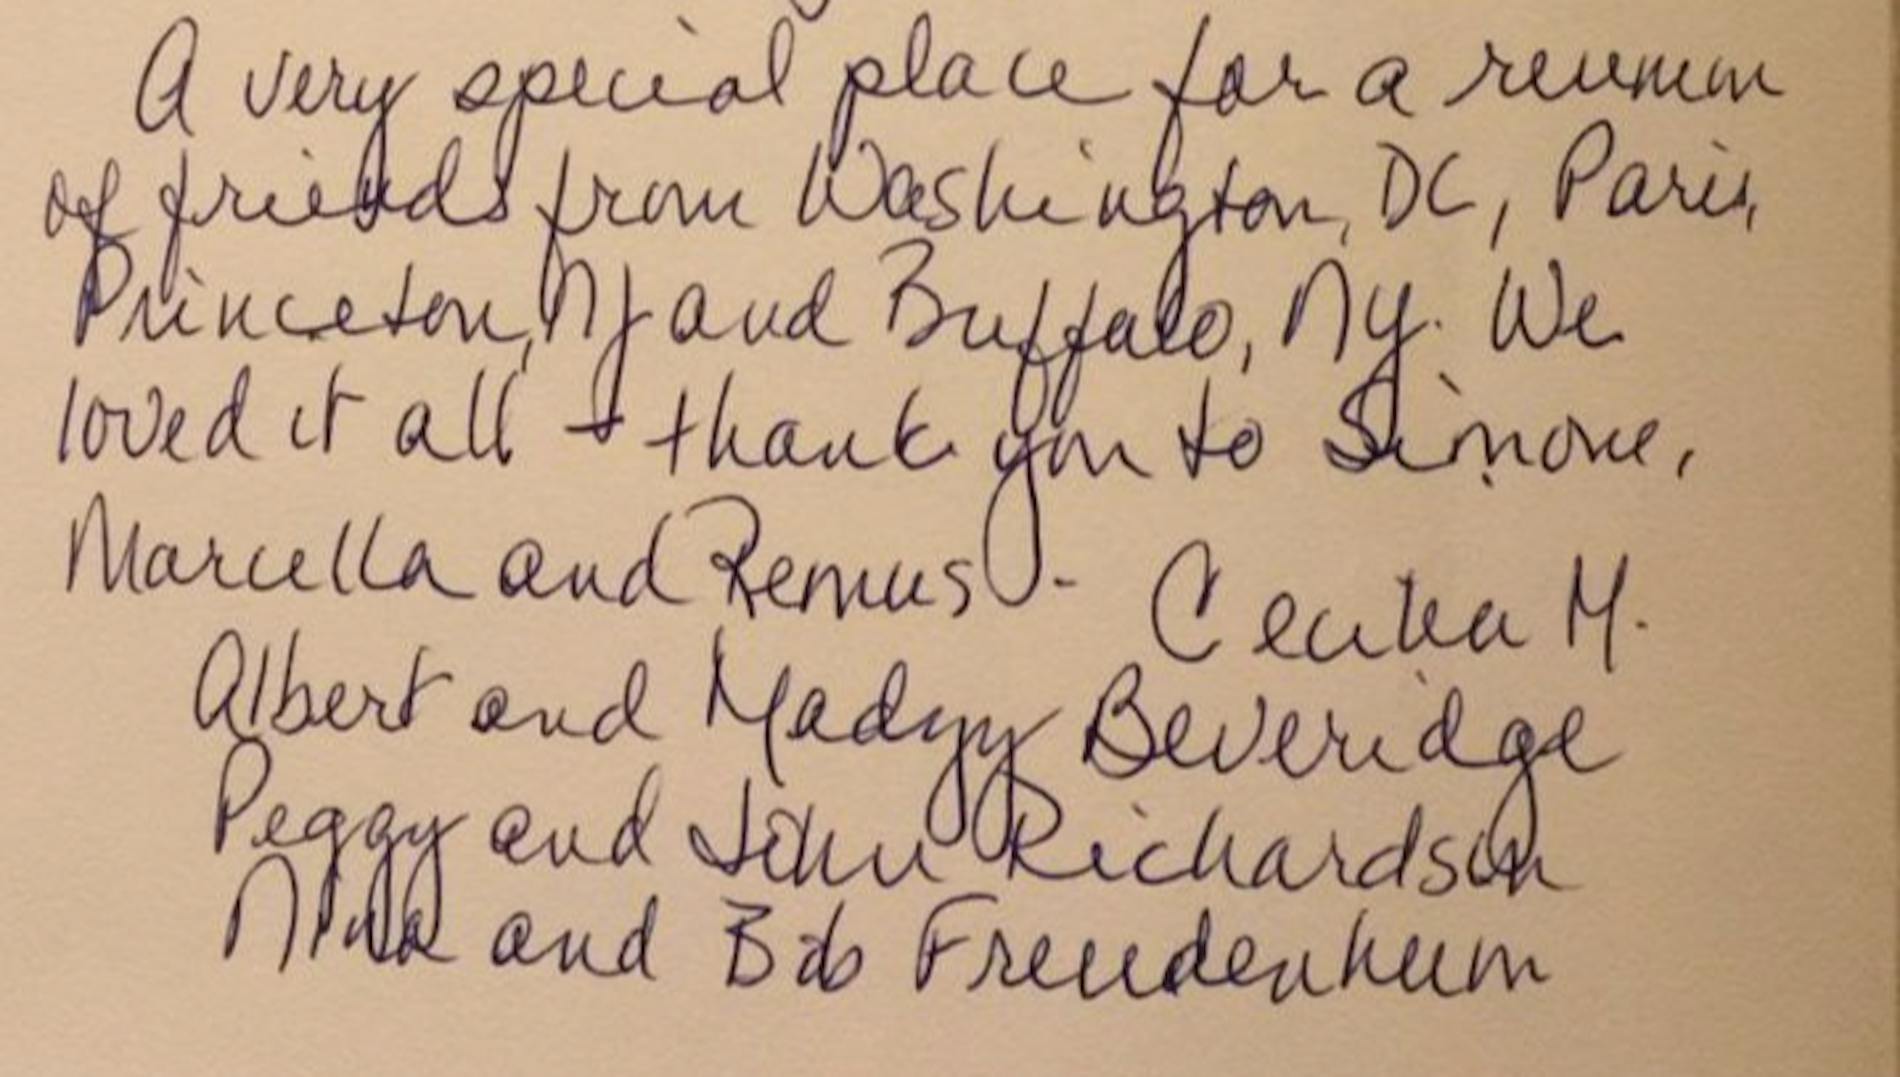 A very special place for a reunion
of friends from Washington, DC, Paris,
Princeton, NJ and Buffalo, NY. We
loved it all + thank you to Simone,
Marcella and Remus - Cecilia M.
Albert and Madzy Beveridge
Peggy and John Richardson
Nina and Bob Freudenheim